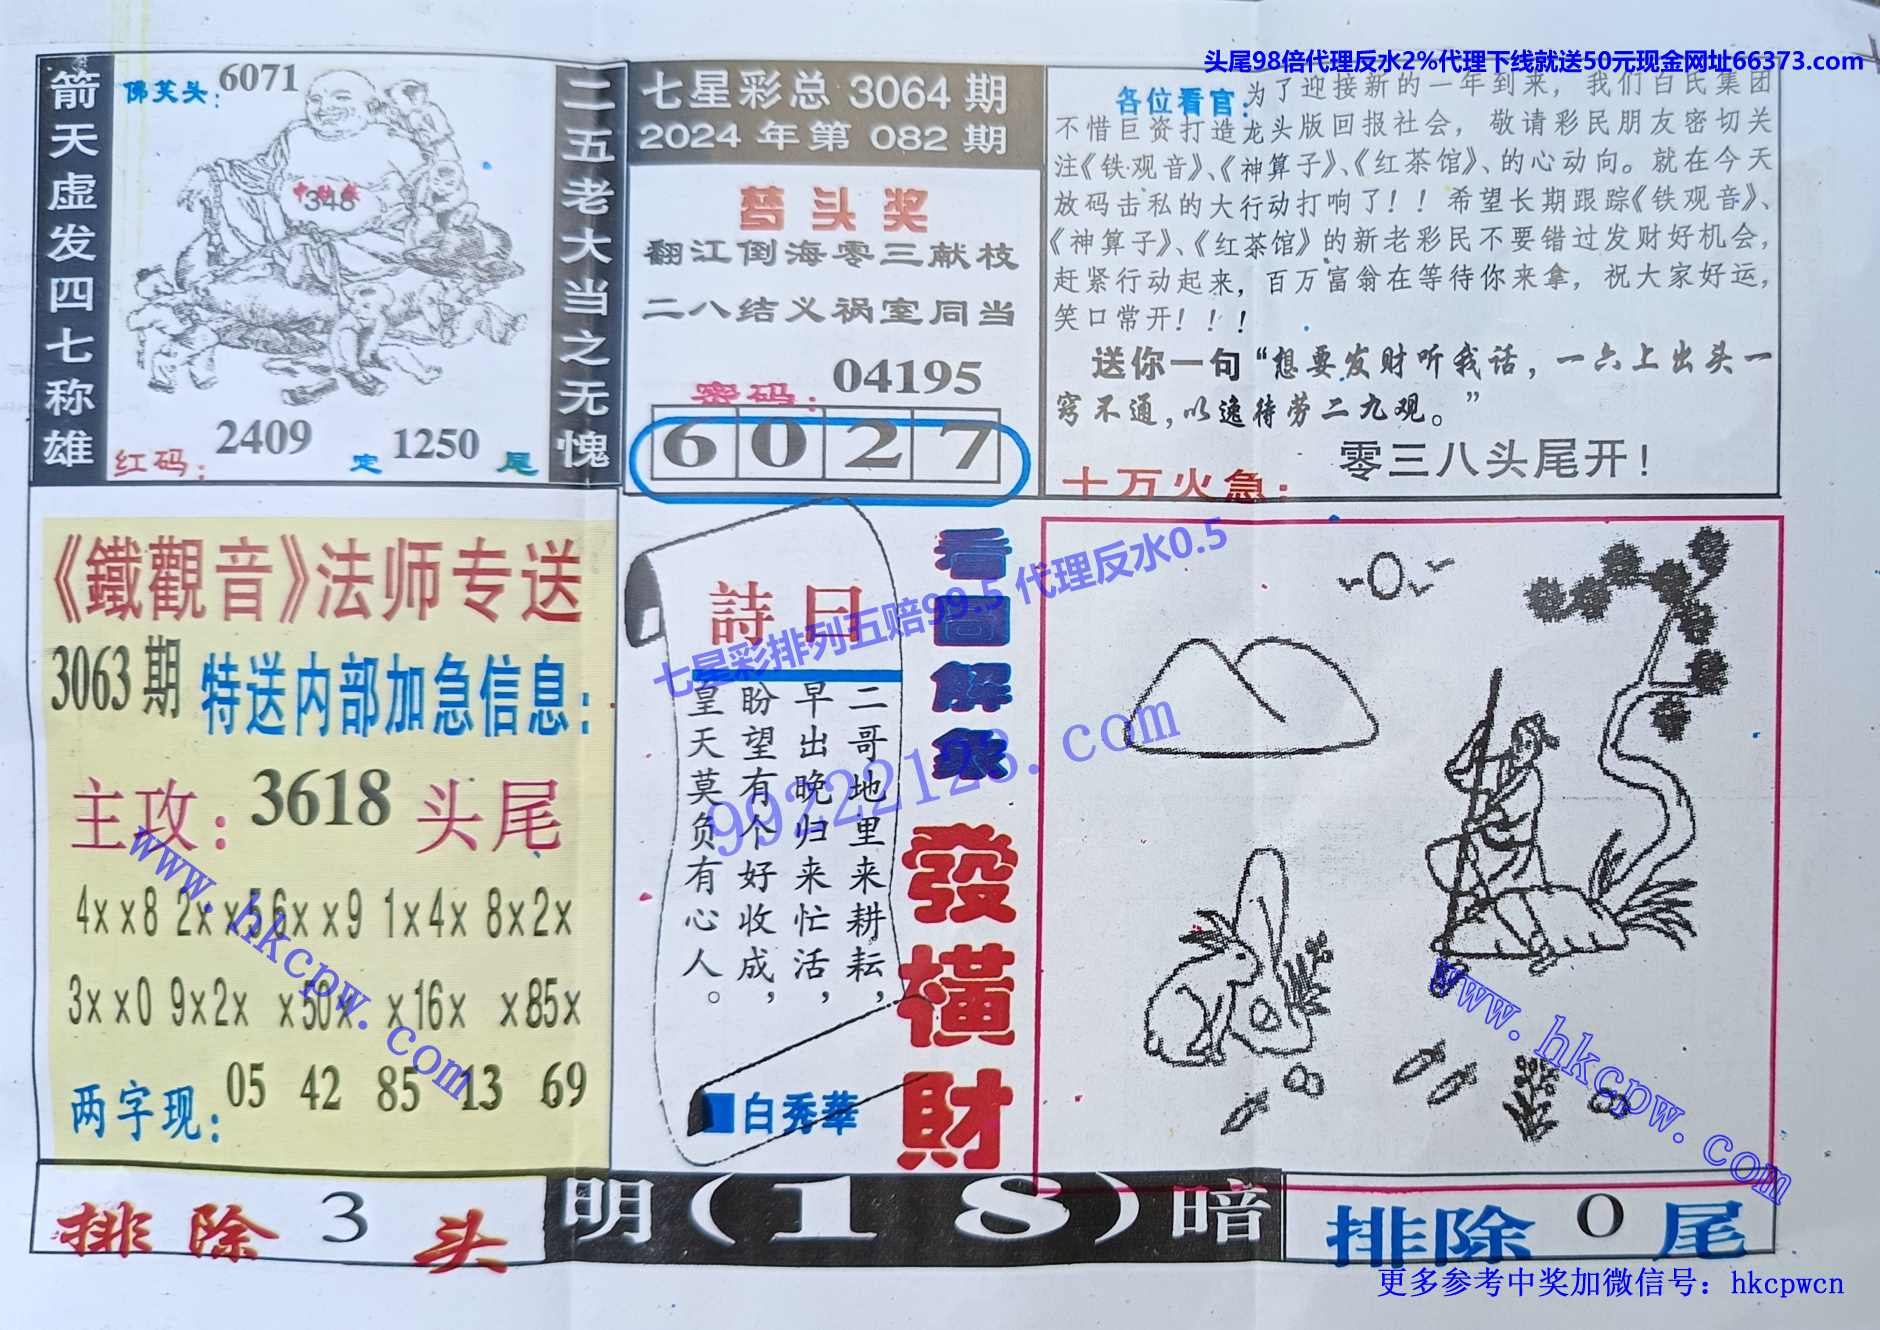 头尾98倍代理反水2%代理下线就送50元现金网址66373.com
箭天虚发四七称雄
佛笑头：6071
348
红码：2409 定 1250 尾
二五老大当之无愧
七星彩总 3064 期
2024 年第 082 期
梦头奖
翻江倒海零三献枝
二八结义祸室同当
密码：04195
6 0 2 7
各位看官：为了迎接新的一年到来，我们白氏集团
不惜巨资打造龙头版回报社会，敬请彩民朋友密切关
注《铁观音》、《神算子》、《红茶馆》、的心动向。就在今天
放码击私的大行动打响了！！希望长期跟踪《铁观音》、
《神算子》、《红茶馆》的新老彩民不要错过发财好机会，
赶紧行动起来，百万富翁在等待你来拿，祝大家好运，
笑口常开！！！
送你一句“想要发财听我话，一六上出头一
窍不通，以逸待劳二九观。”
十万火急：零三八头尾开！
《鐵觀音》法师专送
3063期 特送内部加急信息：
主攻：3618 头尾
4××8 2××5 6××9 1×4× 8×2×
3××0 9×2× ×50× ×16× ×85×
两字现：05 42 85 13 69
詩曰
二哥地里来耕耘，
早出晚归来忙活，
盼望有个好收成，
皇天莫负有心人。
白秀華
看图解象
發橫財
七星彩排列五赔99.5 代理反水0.5
99222128.com
www.hkcpw.com
www.hkcpw.com
排除 3 头
明(18)暗
排除 0 尾
更多参考中奖加微信号：hkcpwcn